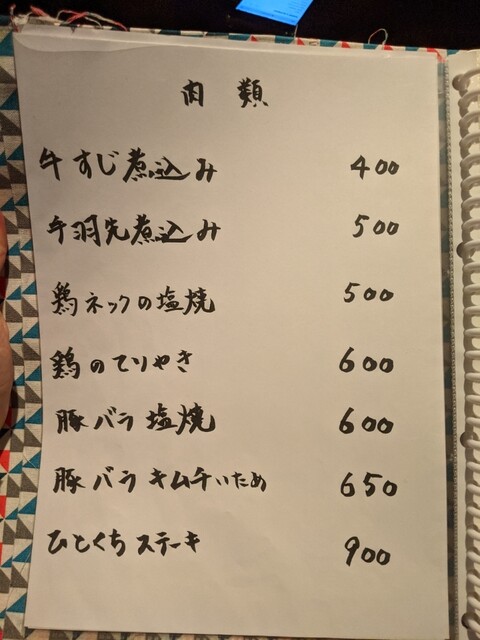 肉類
牛すじ煮込み 400
手羽先煮込み 500
鶏ネックの塩焼 500
鶏のてりやき 600
豚バラ塩焼 600
豚バラキムチいため 650
ひとくちステーキ 900